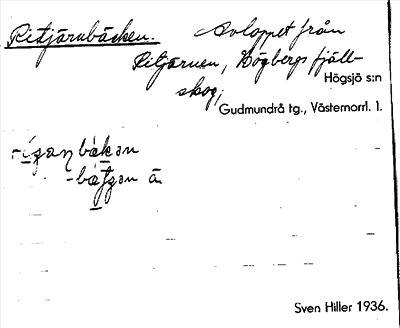 Ritjärnbäcken. Avloppet från
Ritjärnen, Högbergs fjäll-
skog,
Högsjö s:n
Gudmundrå tg., Västernorrl. l.
bäkan
Sven Hiller 1936.